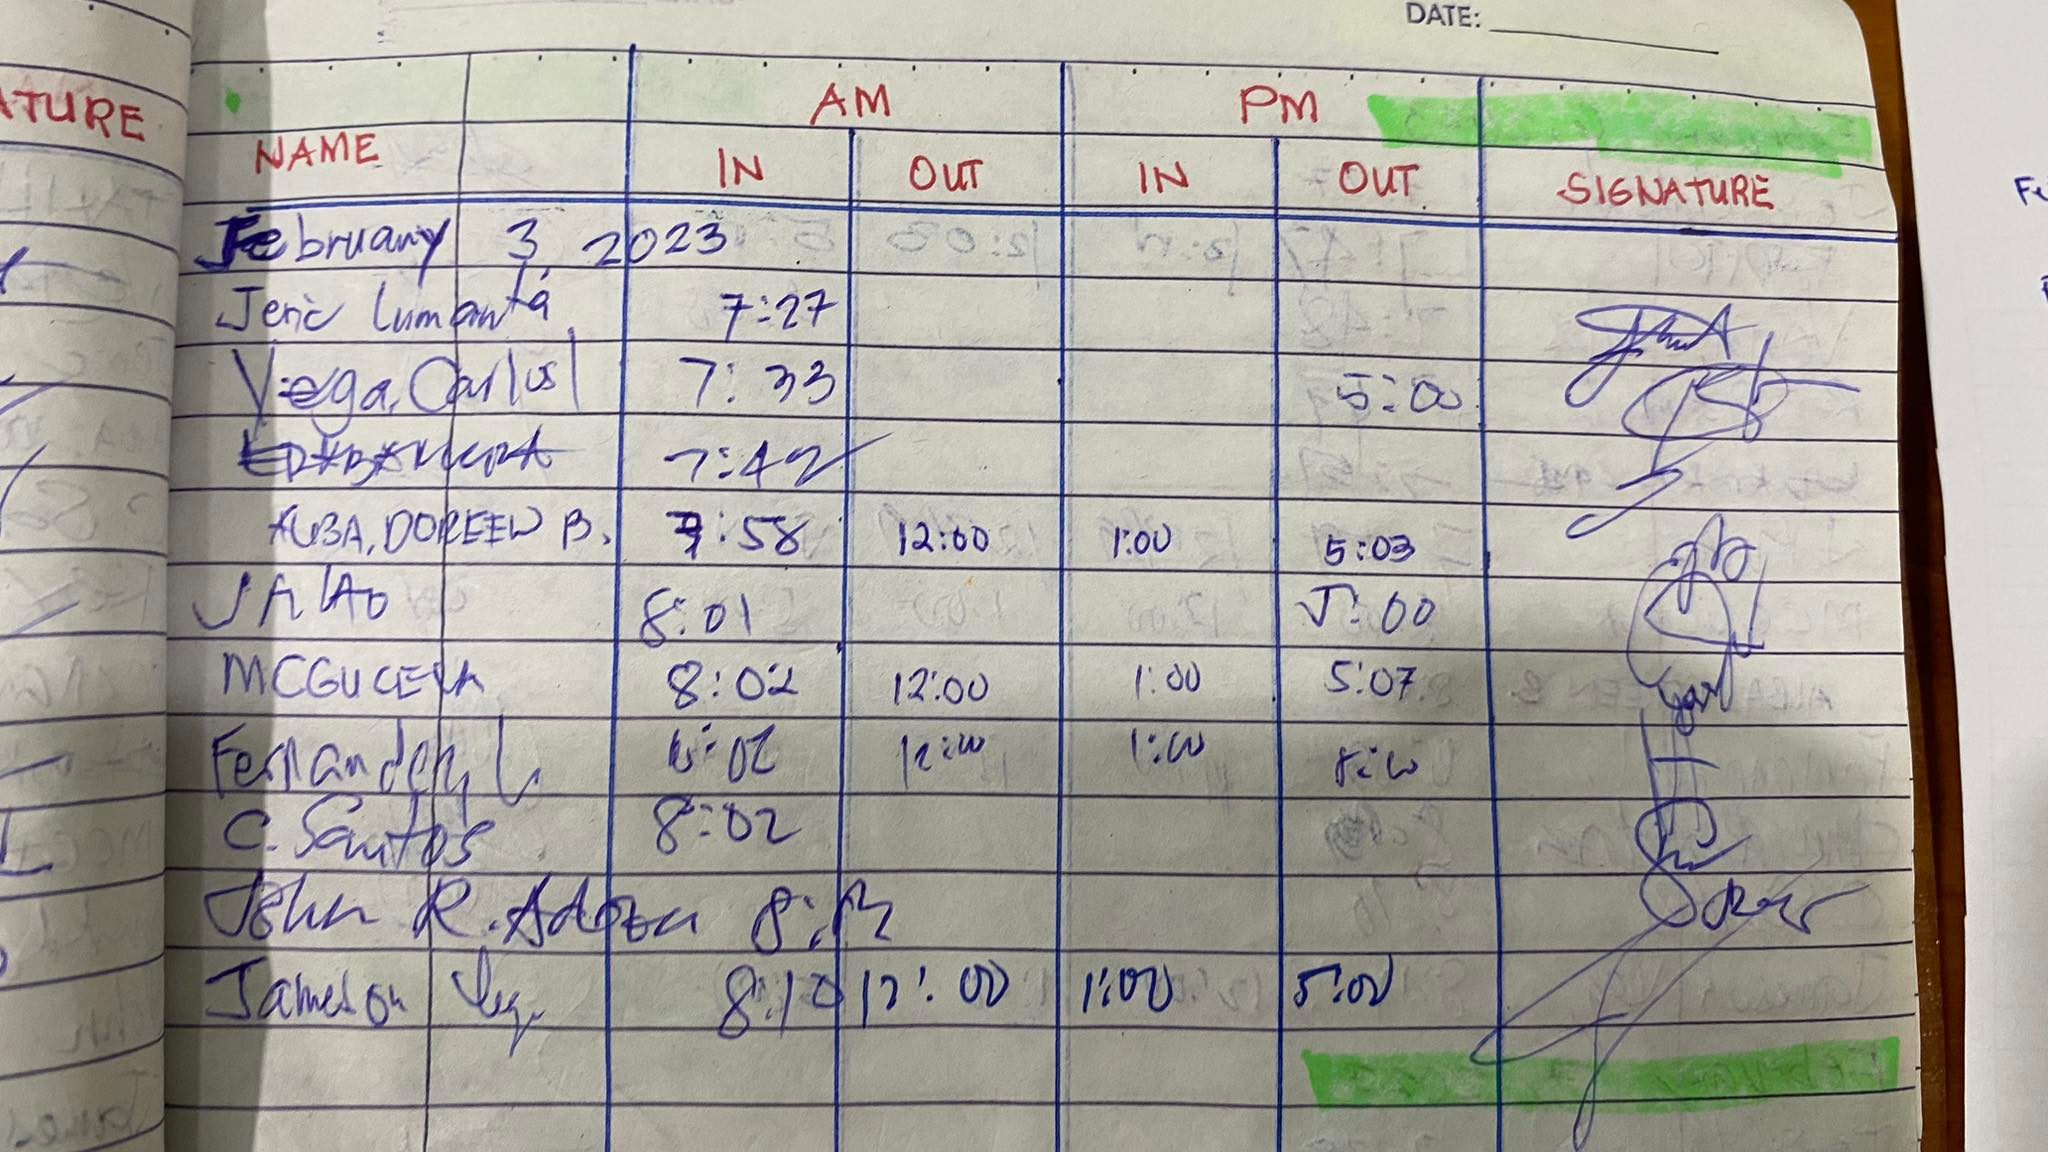 DATE:
ATURE
AM PM
NAME IN OUT IN OUT SIGNATURE
February 3, 2023
Jeric Lumanta 7:27
Vega, Carlos 7:33 5:00
7:42
ALBA, DOREEN B. 7:58 12:00 1:00 5:03
JALAO 8:01 5:00
MCGUCENA 8:02 12:00 1:00 5:07
Fernandez, L. 8:02 12:00 1:00
C. Santos 8:02
John R. Adoza
Jameson 8:10 12:00 1:00 5:00